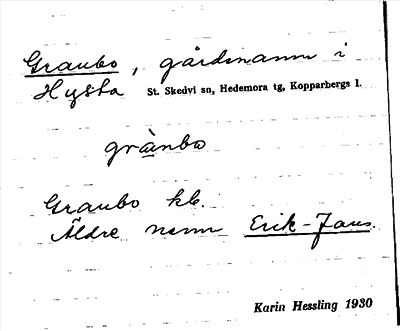 Graubo, gårdsnamn i
Hysta St. Skedvi sn, Hedemora tg, Kopparbergs l.
Graubo kb.
Äldre namn Erik-Jans.
Karin Hessling 1930